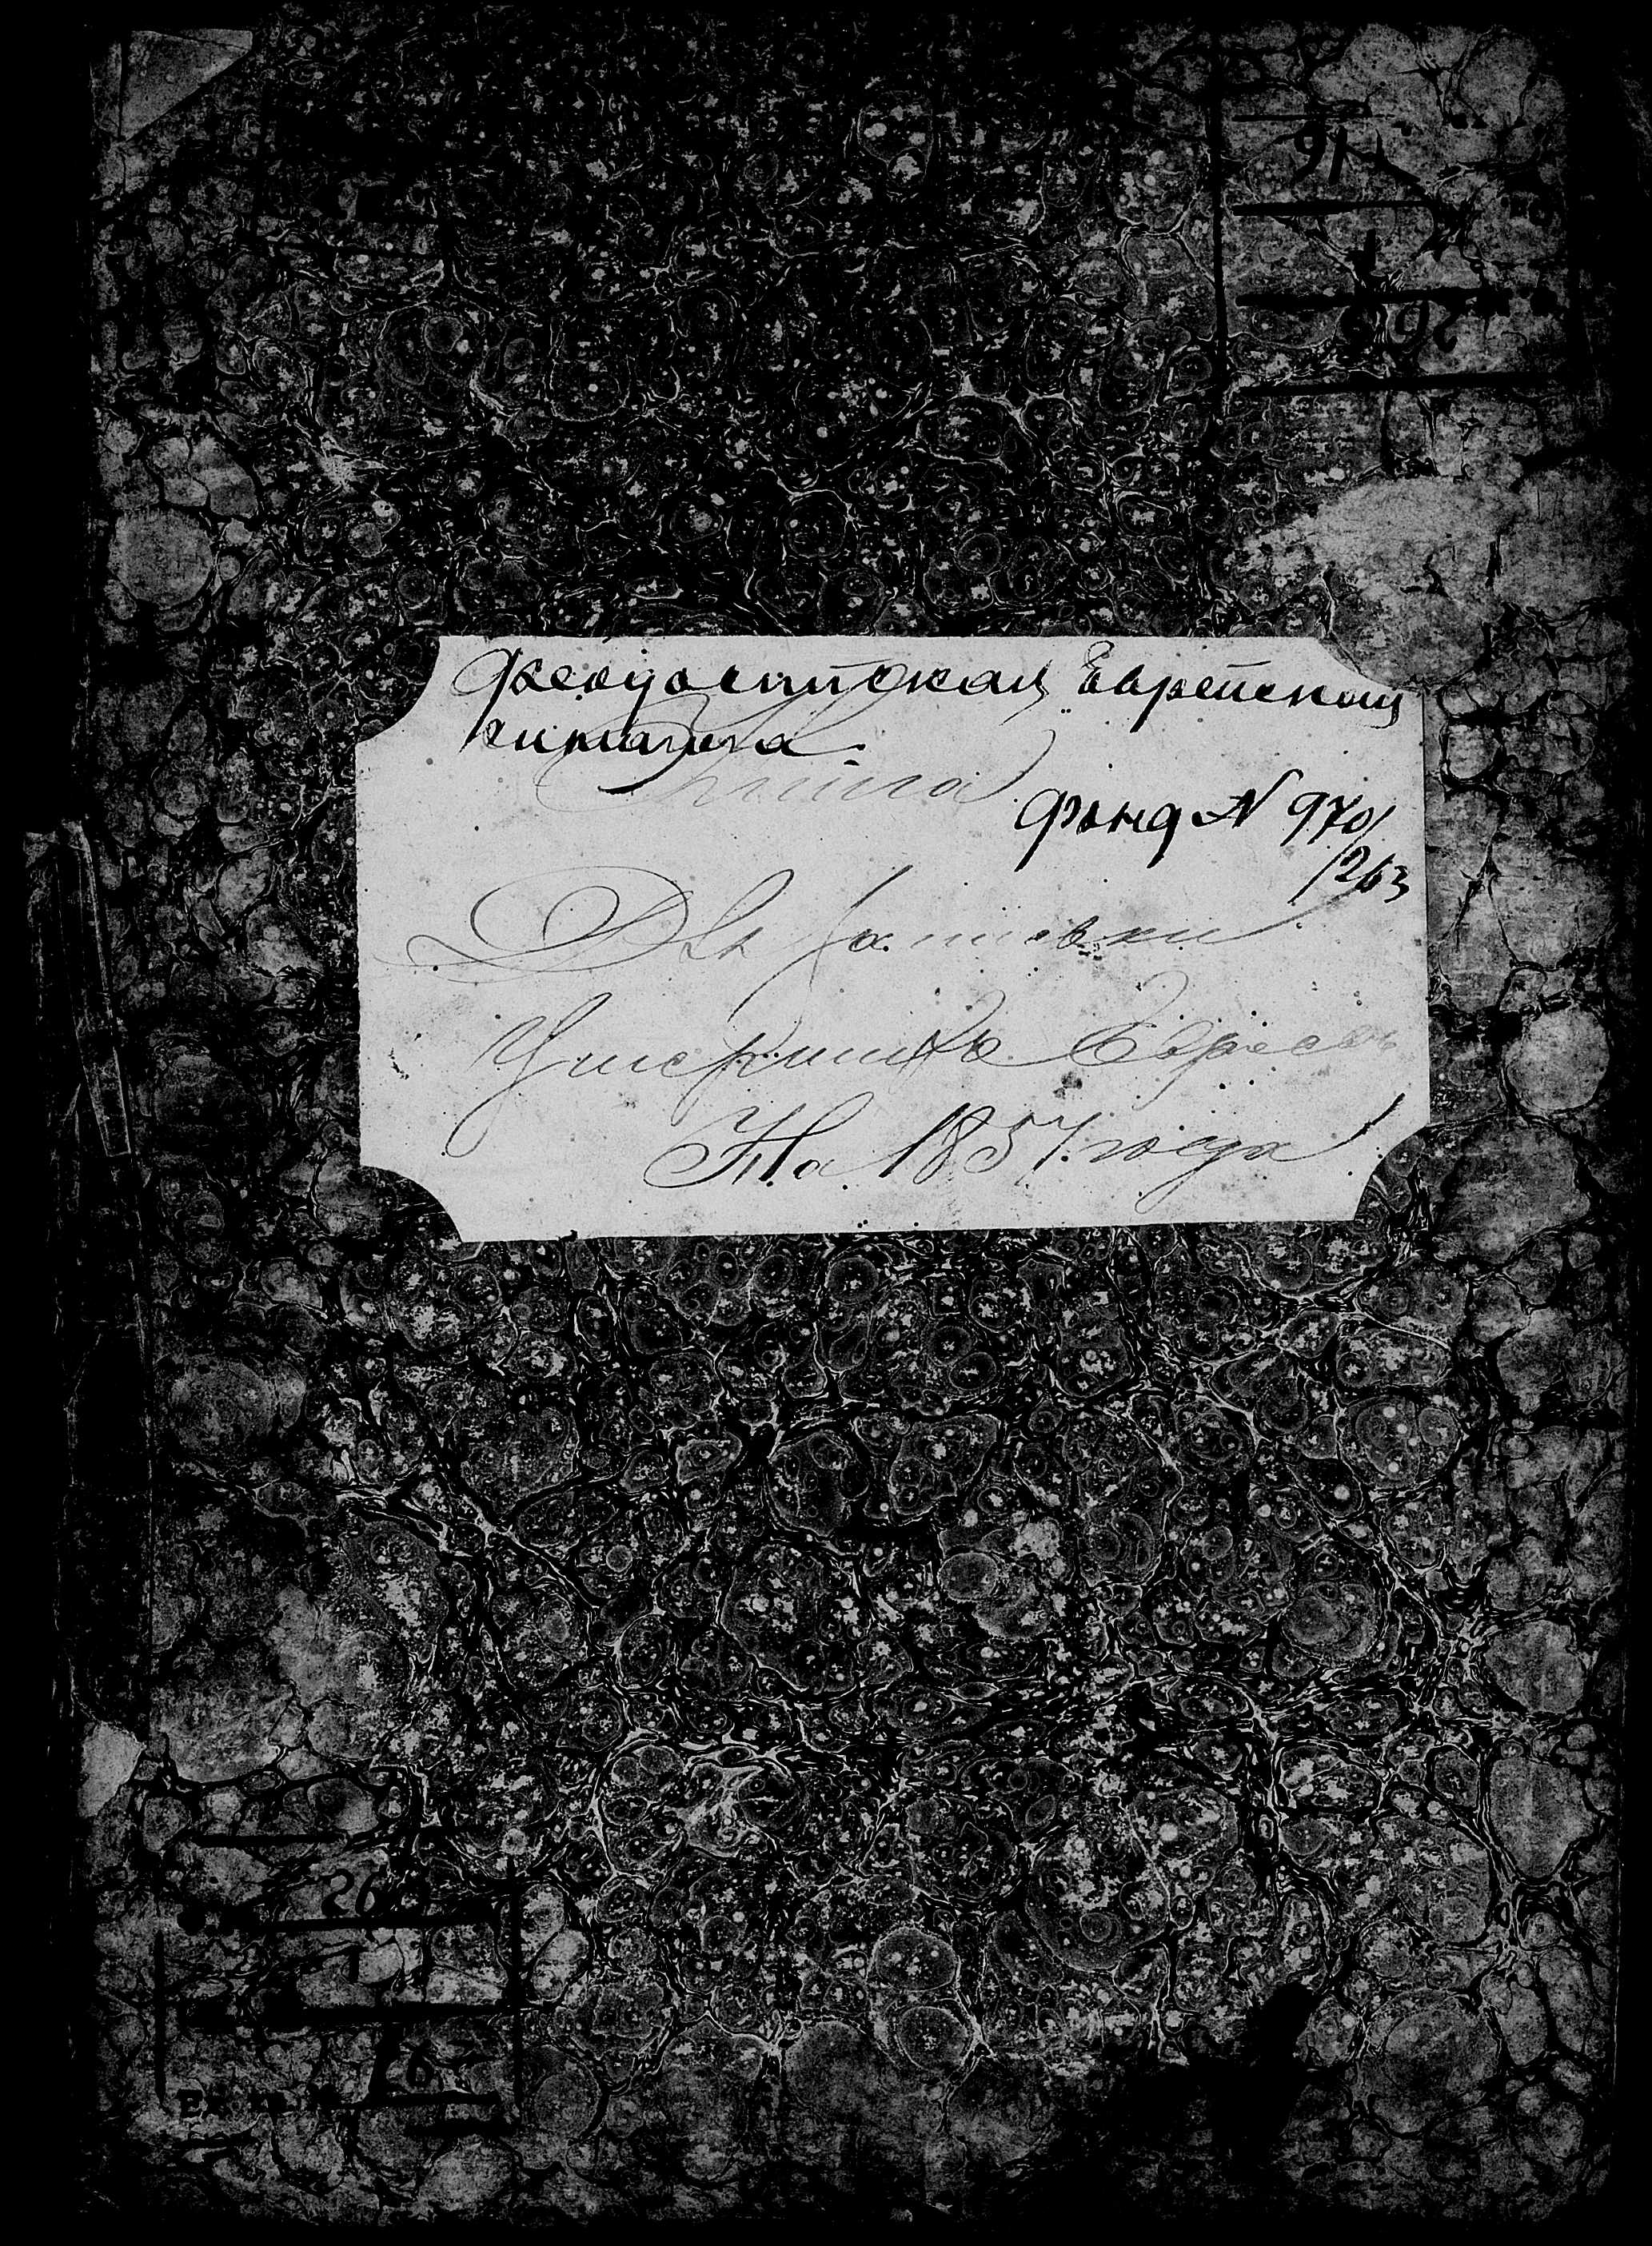 Феодосийская Еврейская
Синагога.
Книга
Фонд N 970/
/263
Для записки
Умершихъ Евреевъ
На 1857. года
263
1
97